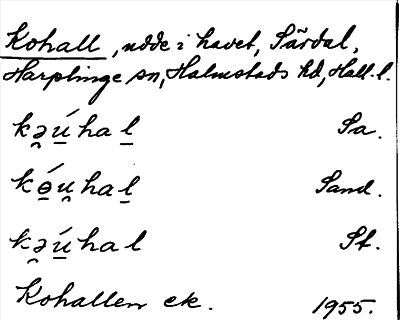 Kohall, udde i havet, Särdal,
Harplinge sn, Halmstads hd, Hall. l.
kə̯ú̱hal̲ Sa.
kɵ̱́u̯hal̲ Sand.
kə̯ú̱hal St.
Kohallen ek. 1955.